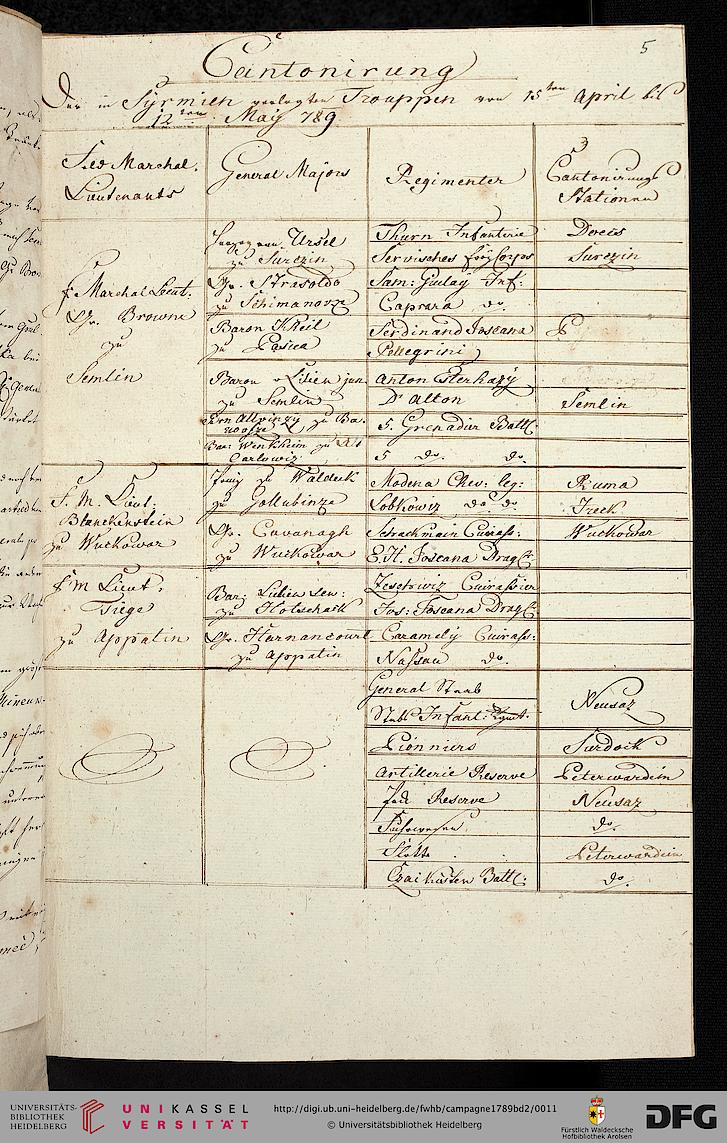 5
Cantonirung
Der in Syrmien verlegten Trouppen von 15ten April bis
12ten May 789
Feld Marchal.
Lieutenants
General Majors
Regimenter
Cantonirungs
Stationen
F. Marchal Lieut.
Gr. Browne
zu
Semlin
Herzog von Ursel
zu Surczin
Gr. Strasoldo
zu Schimanovze
Baron Kheil
zu Pasua
Baron v Lilien jun
zu Semlin
Brn Allvinzy zu Ba.
Bar: Wenkheim zu
Carlowiz
Thurn Infanterie
Servisches Frey Corps
Sam: Gyulay Inf:
Caprara do.
Ferdinand Toscana
Pellegrini
Anton Esterhazy
D'Alton
5. Grenadier Batt:
5 do. do.
Devecs
Surczin
Semlin
F. M. Lieut:
Blanckenstein
zu Wuckowar
zu Waldeck
zu Gollubinze
Gr. Cavanagh
zu Wuckowar
Modena Chev: leg:
Lobkowiz do do
Schackmain Cuirass:
E. H. Toscana Drag:
Ruma
Ireck
Wuckowar
F M Lieut.
Tiege
zu Appatin
Bar: Lilien Sen:
zu Hotschack
Gr. Harnancourt
zu Appatin
Zesetwiz Cuirassier
Jos: Toscana Drag:
Caramely Cuirass:
Nassau do.
General Staab
Stabs Infant: Regmt.
Pionniers
Artillerie Reserve
Reserve
Fuhrwesen
Czaikisten Batt:
Neusaz
Surdock
Peterwardein
Neusaz
do.
Peterwardein
do.
UNIVERSITÄTS-
BIBLIOTHEK
HEIDELBERG
UNIKASSEL
VERSITÄT
http://digi.ub.uni-heidelberg.de/fwhb/campagne1789bd2/0011
© Universitätsbibliothek Heidelberg
Fürstlich Waldecksche
Hofbibliothek Arolsen
DFG